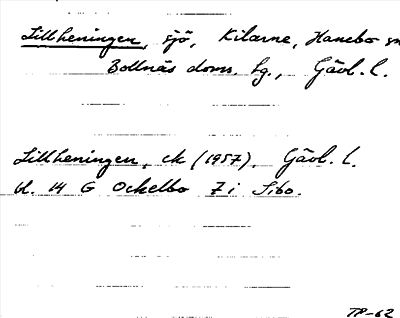 Lillheningen, sjö, Kilarne, Hanebo sn
Bollnäs doms. hg., Gävl. l.
Lillheningen, ek (1957). Gävl. l.
bl. 14 G Ockelbo 7 i Sibo.
TP-62